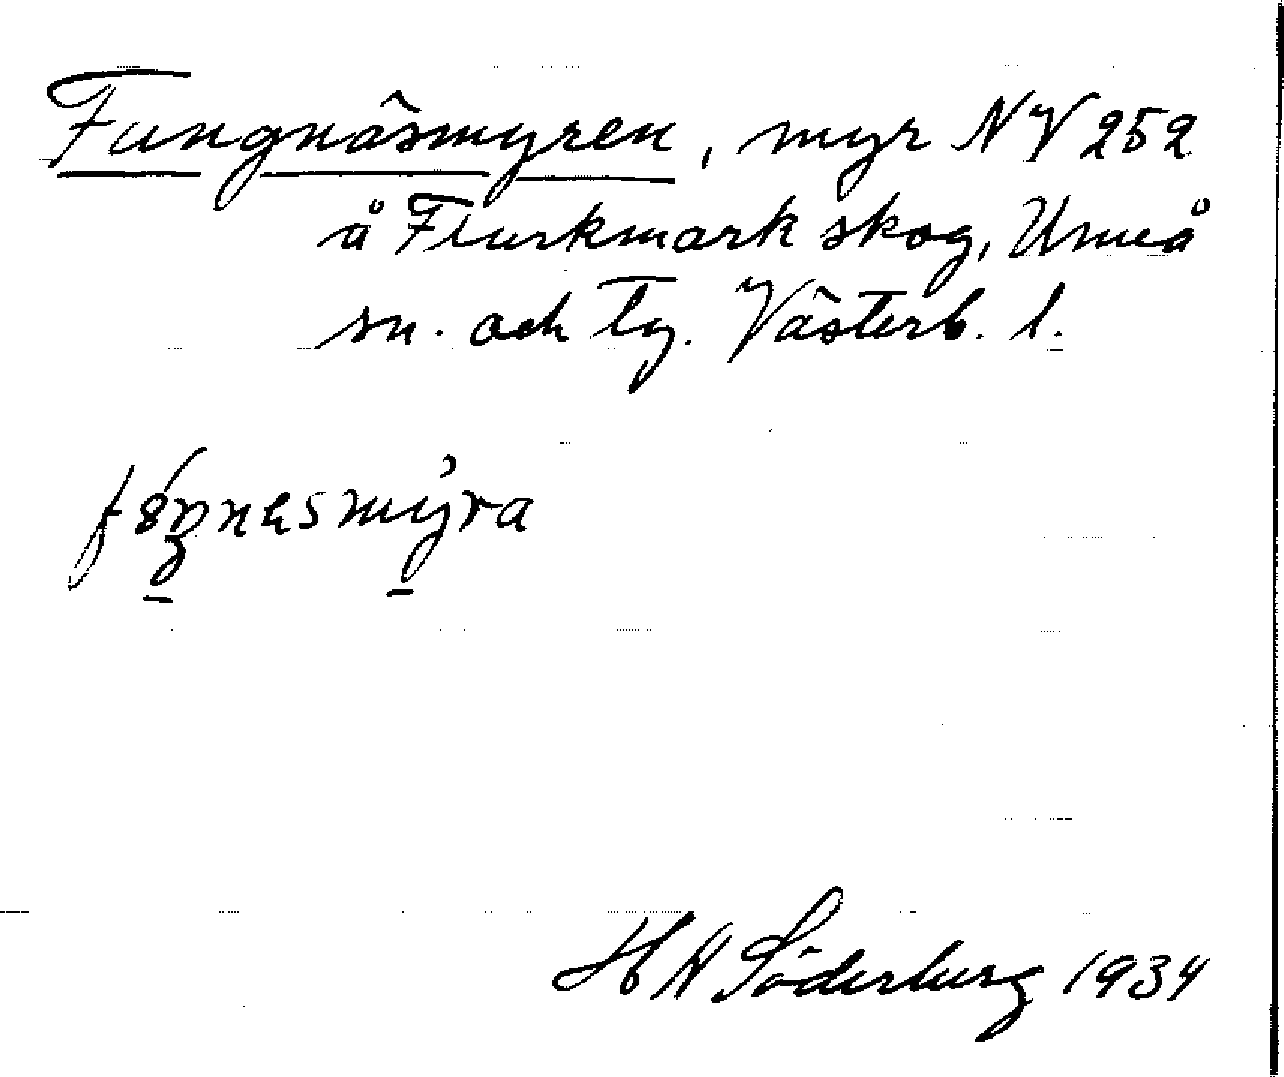 Fungnäsmyren, myr NV 252
å Flurkmark skog, Umeå
sn. och tg. Västerb. l.
H N Söderberg 1934